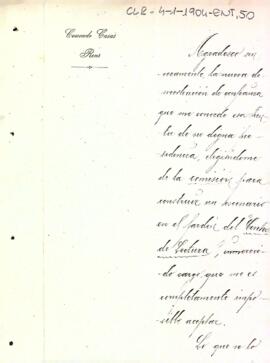 CLR-4-1-1904-ENT,50
Conrado Casas
Reus
Agradezco sin
ceramente la nueva de
mostración de confianza
que me concede esa Jun
ta de su digna pre
sidencia, eligiéndome
de la comisión para
construir un escenario
en el jardin del "Centro
de Lectura", inmereci
do cargo, que me es
completamente impo
sible aceptar.
Lo que se lo